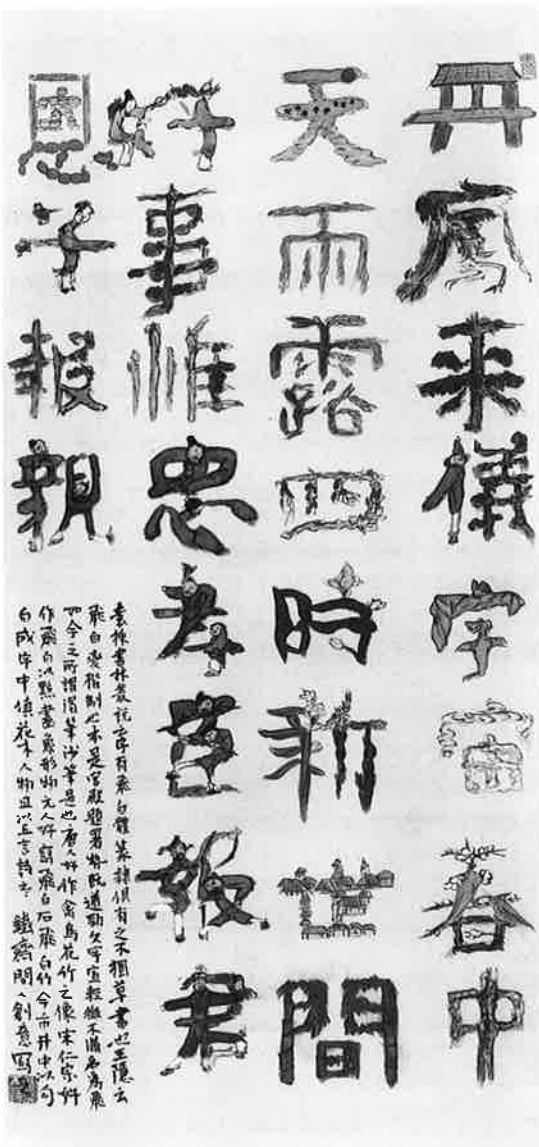 丹鳳来儀宇宙春中
天雨露四時新世間
好事惟忠孝臣報君
恩子報親
書林叢説云字有飛白體篆隷俱有之不獨草書也王隱云
飛白変楷制也本是宮殿題署勢既遒勁文字宜輕微不滿名為飛
如今之所謂渇筆沙筆是也唐人好作禽鳥花竹之像宋仁宗好
作飛白以點畫象形物元人好寫飛白石飛白竹今市井中以勾
白成字中填花木人物且以五言詩 鐵齋間人創意寫